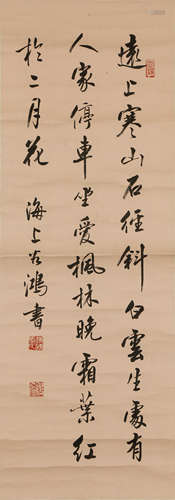 遠上寒山石徑斜白雲生處有
人家停車坐愛楓林晚霜葉紅
於二月花 海上
鴻書